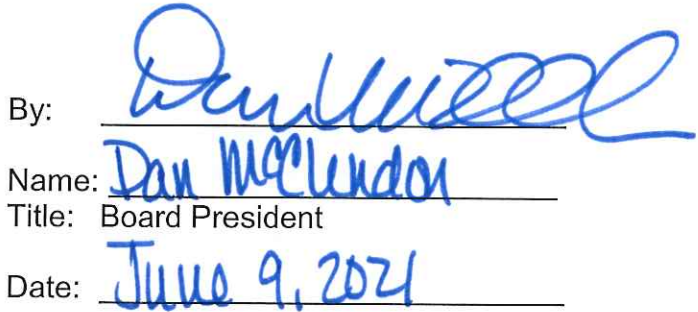 By:
Name: Dan McClendon
Title: Board President
Date: June 9, 2021